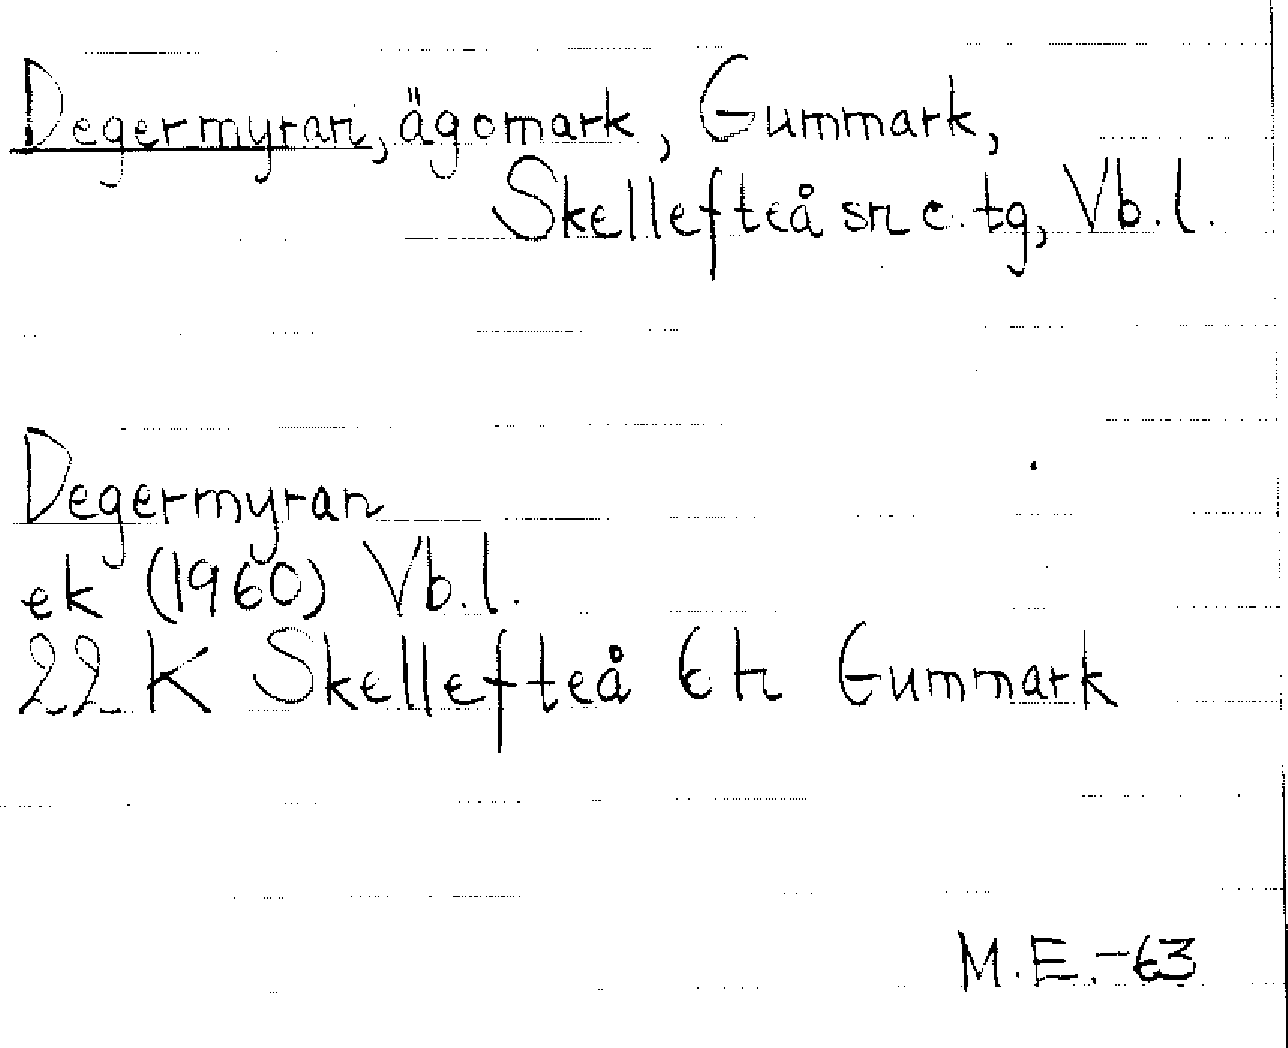 Degermyran, ägomark, Gummark,
Skellefteå sn o. tg, Vb. l.
Degermyran
ek (1960) Vb. l.
22 K Skellefteå 6 h Gummark
M.E.-63